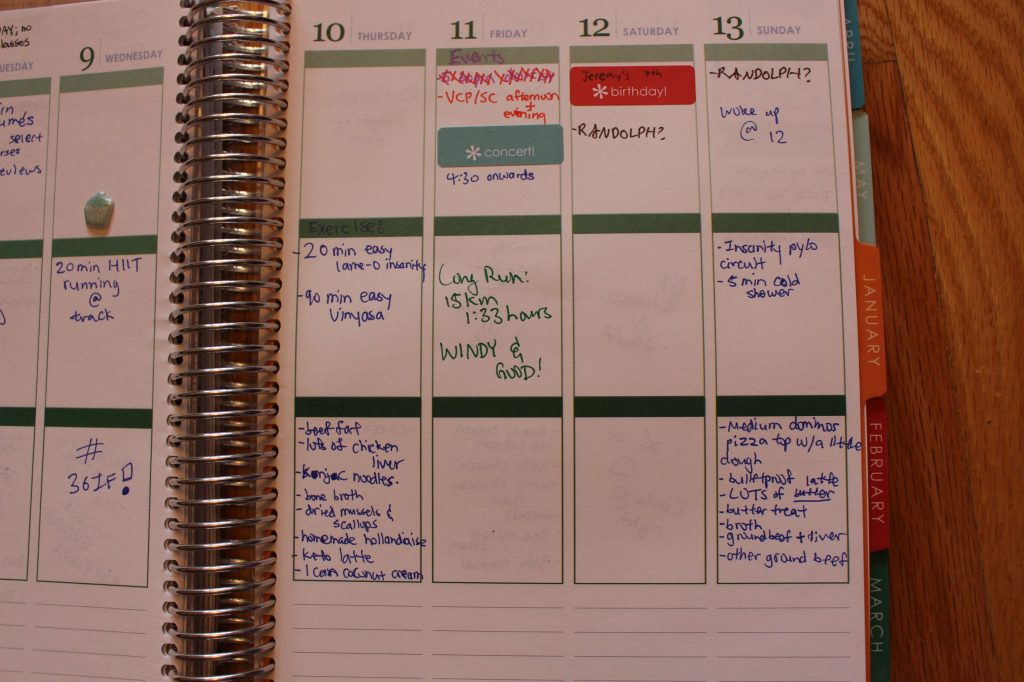 DAY; no
classes
UESDAY
select
reviews
9 WEDNESDAY
20 min HIIT
running
@
track
#
36IF!
10 THURSDAY
Exercises
-20 min easy
lame-o insanity
-90 min easy
Vinyasa
-beef fat
-lots of chicken
liver
-Konjac noodles.
-bone broth
-dried mussels &
scallops
-homemade hollandaise
-keto latte
-1 can coconut cream
11 FRIDAY
Events
-VCP/SC afternoon
+
evening
* concert!
4:30 onwards
Long Run:
15km
1:33 hours
WINDY &
GOOD!
12 SATURDAY
Jeremy's 7th
* birthday!
-RANDOLPH?
13 SUNDAY
-RANDOLPH?
woke up
@ 12
-Insanity pylo
circuit
-5 min cold
shower
-Medium dominos
pizza top w/a little
dough
-bulletproof latte
-LOTS of butter
-butter treat
-broth
-ground beef + liver
-other ground beef
APRIL
MAY
JANUARY
FEBRUARY
MARCH